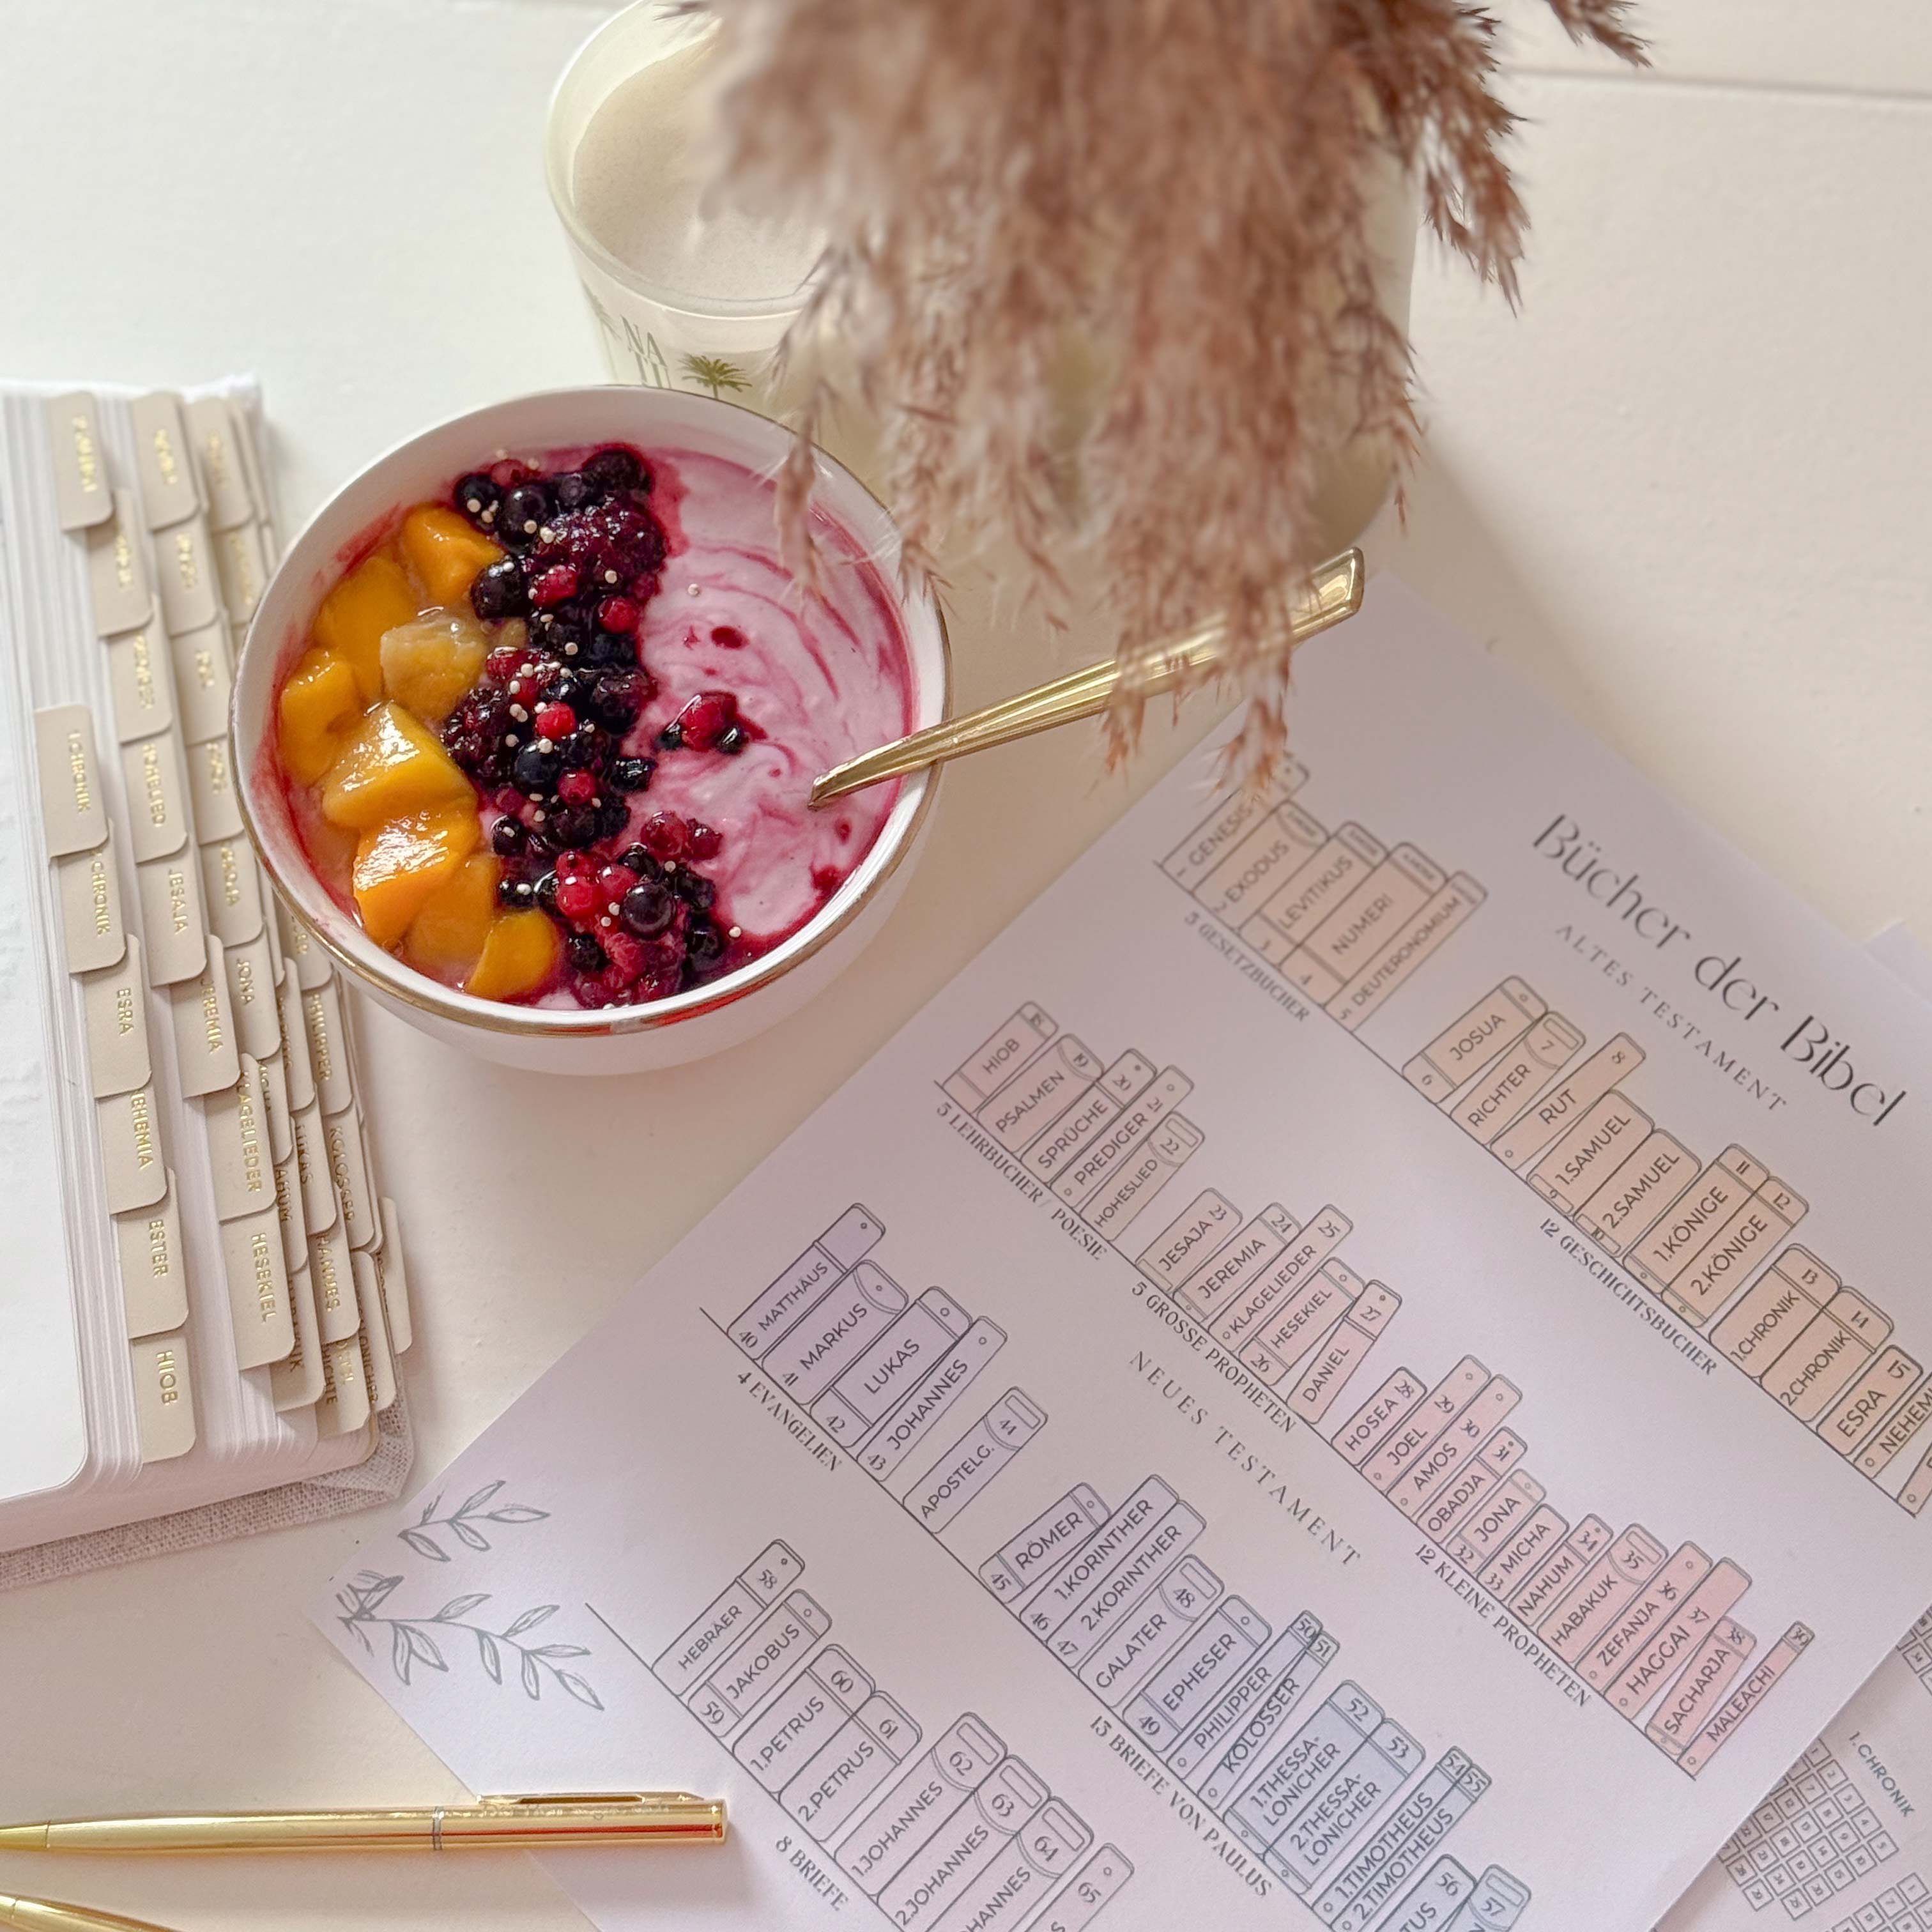 Bücher der Bibel
ALTES TESTAMENT
1 GENESIS
2 EXODUS
3 LEVITIKUS
4 NUMERI
5 DEUTERONOMIUM
5 GESETZBÜCHER
6 JOSUA
7 RICHTER
8 RUT
9 1.SAMUEL
10 2.SAMUEL
11 1.KÖNIGE
12 2.KÖNIGE
13 1.CHRONIK
14 2.CHRONIK
15 ESRA
12 GESCHICHTSBÜCHER
18 HIOB
19 PSALMEN
20 SPRÜCHE
21 PREDIGER
22 HOHESLIED
5 LEHRBÜCHER / POESIE
23 JESAJA
24 JEREMIA
25 KLAGELIEDER
26 HESEKIEL
27 DANIEL
5 GROSSE PROPHETEN
28 HOSEA
29 JOEL
30 AMOS
31 OBADJA
32 JONA
33 MICHA
34 NAHUM
35 HABAKUK
36 ZEFANJA
37 HAGGAI
38 SACHARJA
39 MALEACHI
12 KLEINE PROPHETEN
NEUES TESTAMENT
40 MATTHÄUS
41 MARKUS
42 LUKAS
43 JOHANNES
4 EVANGELIEN
44 APOSTELG.
45 RÖMER
46 1.KORINTHER
47 2.KORINTHER
48 GALATER
49 EPHESER
50 PHILIPPER
51 KOLOSSER
52 1.THESSA-
LONICHER
53 2.THESSA-
LONICHER
54 1.TIMOTHEUS
55 2.TIMOTHEUS
56
57
13 BRIEFE VON PAULUS
58 HEBRÄER
59 JAKOBUS
60 1.PETRUS
61 2.PETRUS
62 1.JOHANNES
63 2.JOHANNES
64
65
8 BRIEFE
1. CHRONIK
NA
ESRA
ESTER
HIOB
JESAJA
JEREMIA
KLAGELIEDER
HESEKIEL
JONA
PHILIPPER
KOLOSSER